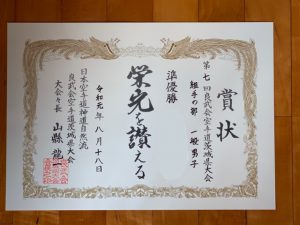 賞状
第七回良武会空手道茨城県大会
組手の部 一般男子
準優勝
栄光を讃える
令和元年八月十八日
日本空手道神道自然流
良武会空手道茨城県大会
大会々長 山縣 龍一